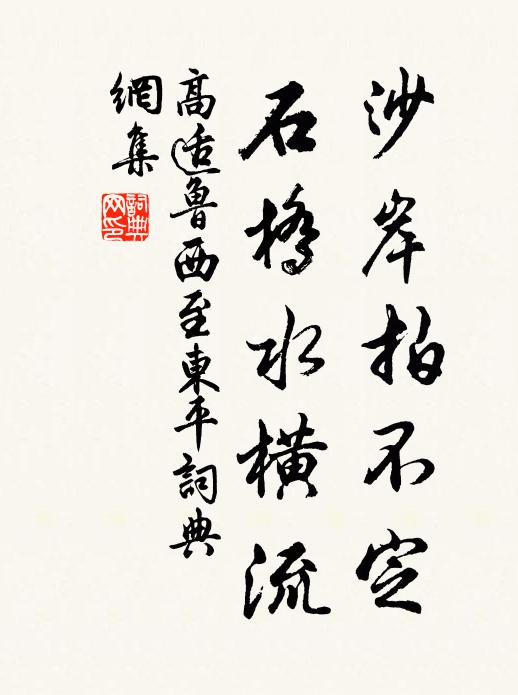 沙岸拍不定
石橋水橫流
高适魯西至東平詞典
網集
詞典网印